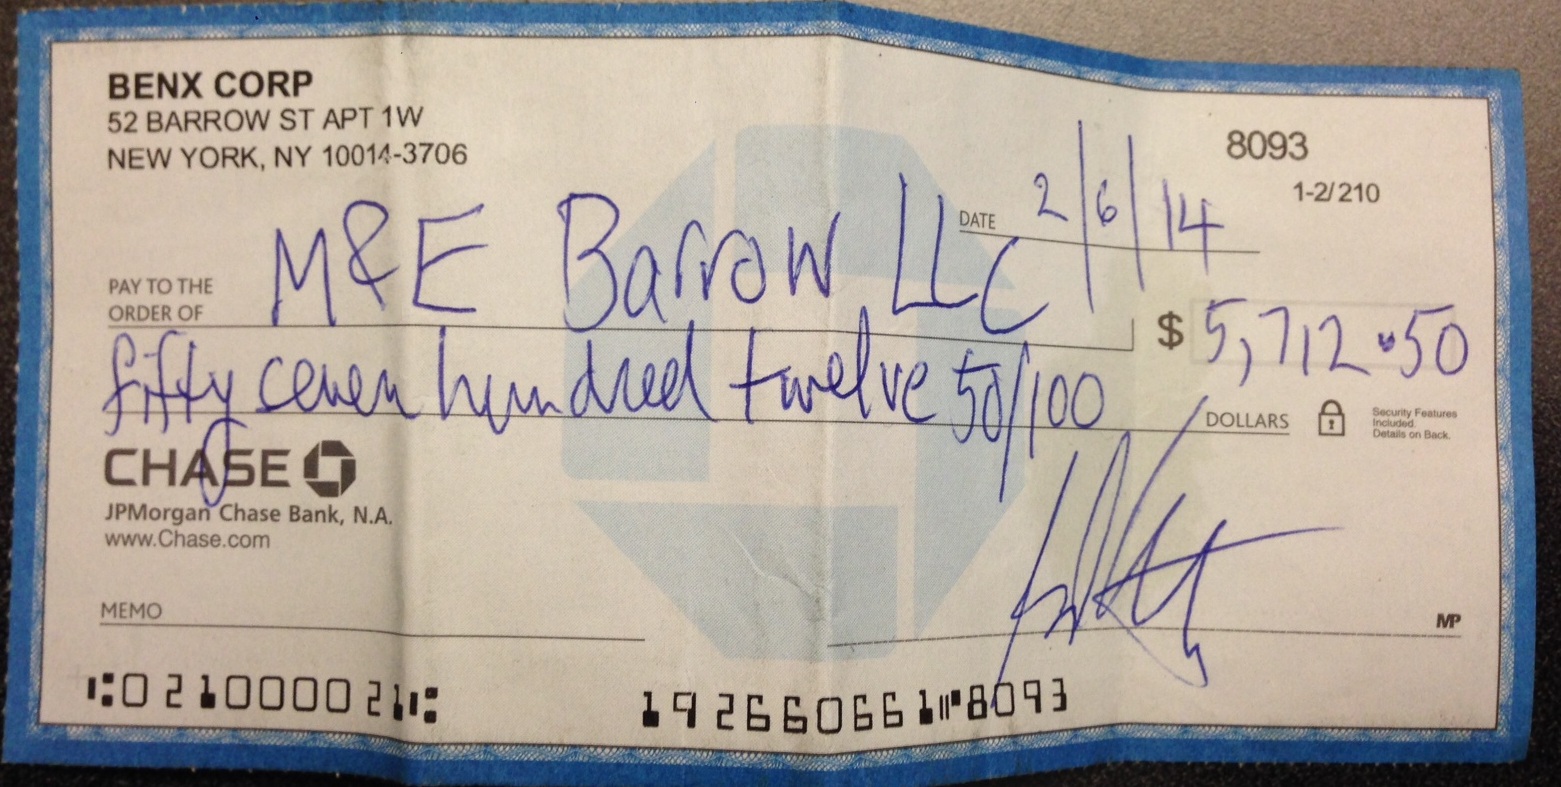 BENX CORP
52 BARROW ST APT 1W
NEW YORK, NY 10014-3706
8093
1-2/210
DATE 2/6/14
PAY TO THE
ORDER OF M&E Barrow LLC $ 5,712.50
fifty seven hundred twelve 50/100 DOLLARS
Security Features
Included.
Details on Back.
CHASE
JPMorgan Chase Bank, N.A.
www.Chase.com
MEMO
MP
⑆021000021⑆ 192660661⑈8093